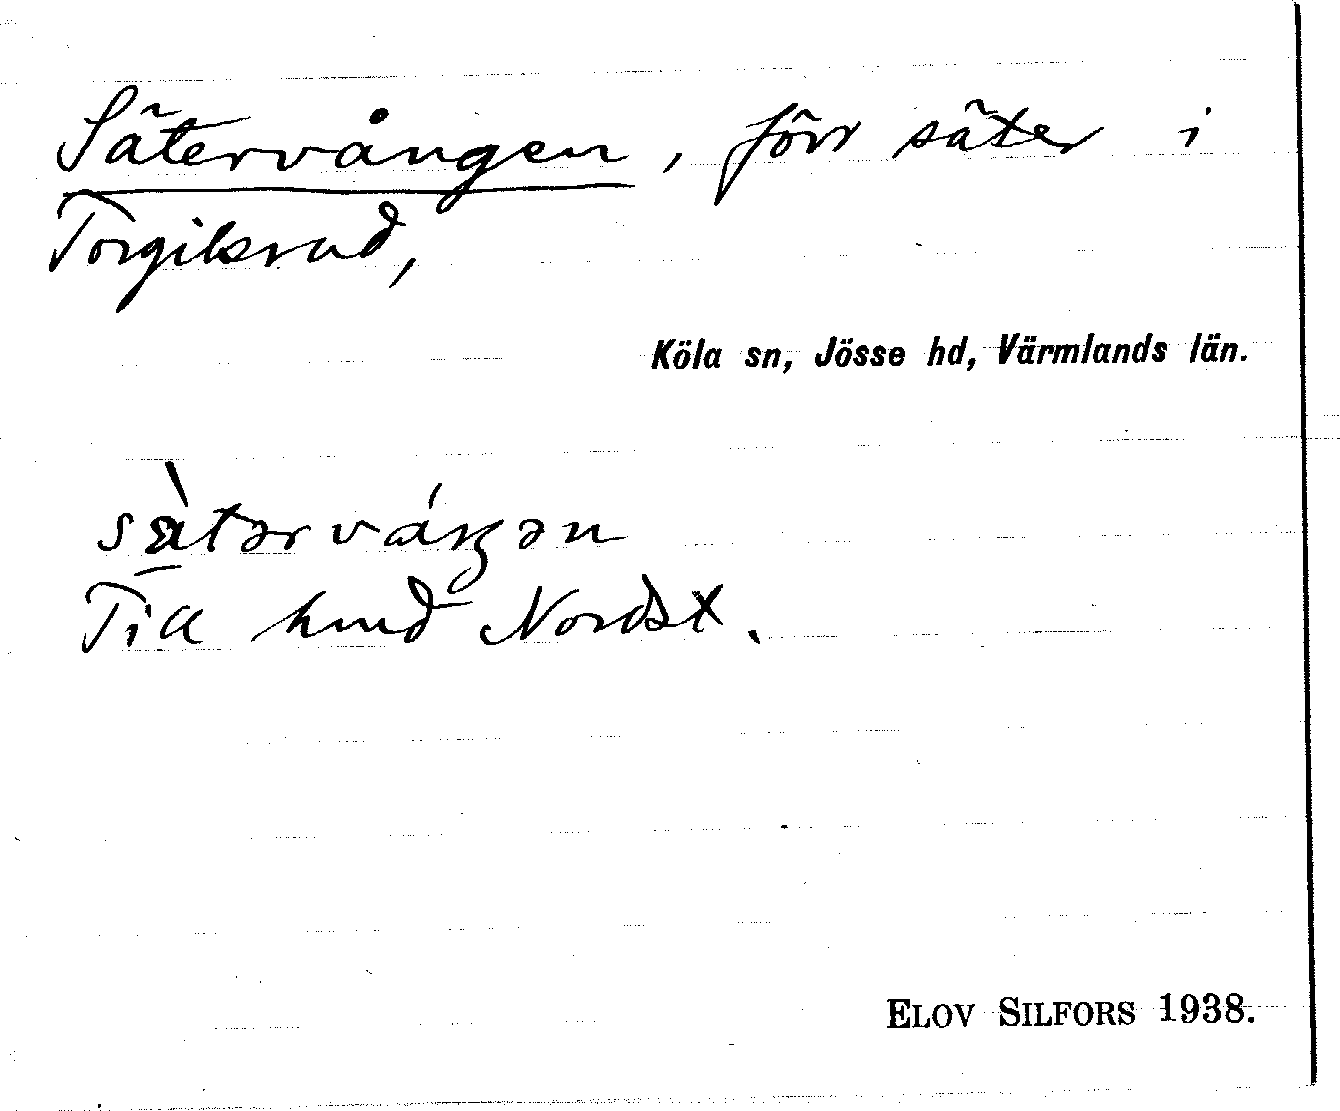 Sätervången, förr säter i
Torgilsrud,
Köla sn, Jösse hd, Värmlands län.
sàtərváŋən
Till hmd Nordst.
ELOV SILFORS 1938.